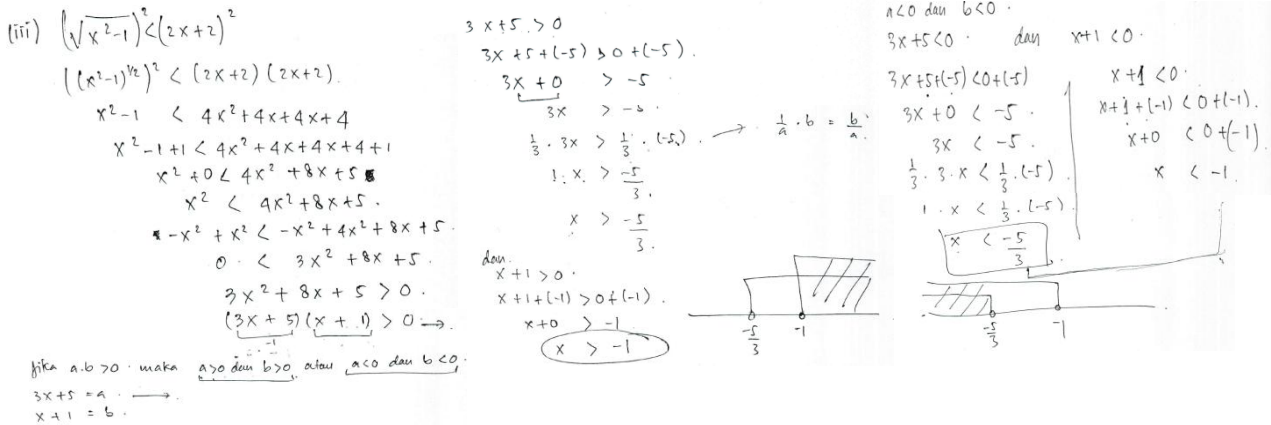 (iii) (√(x²-1))² < (2x+2)²
((x²-1)^{1/2})² < (2x+2)(2x+2).
x²-1 < 4x²+4x+4x+4
x²-1+1 < 4x²+4x+4x+4+1
x²+0 < 4x²+8x+5
x² < 4x²+8x+5.
-x²+x² < -x²+4x²+8x+5.
0 < 3x²+8x+5.
3x²+8x+5 > 0.
(3x+5)(x+1) > 0 →.
-1
Jika a.b > 0 maka a>0 dan b>0 atau a<0 dan b<0.
3x+5 = a. →.
x+1 = b.
3x+5 > 0
3x+5+(-5) > 0+(-5).
3x+0 > -5
3x > -5.
1/3 . 3x > 1/3 . (-5). → 1/a . b = b/a.
1. x. > -5/3.
x > -5/3.
dan.
x+1 > 0.
x+1+(-1) > 0+(-1).
x+0 > -1
x > -1
-5/3 -1
a<0 dan b<0.
3x+5 < 0. dan x+1 < 0.
3x+5+(-5) < 0+(-5)
3x+0 < -5.
3x < -5.
1/3 . 3 . x < 1/3 . (-5)
1 . x < 1/3 . (-5)
x < -5/3
x+1 < 0.
x+1+(-1) < 0+(-1).
x+0 < 0+(-1)
x < -1.
-5/3 -1